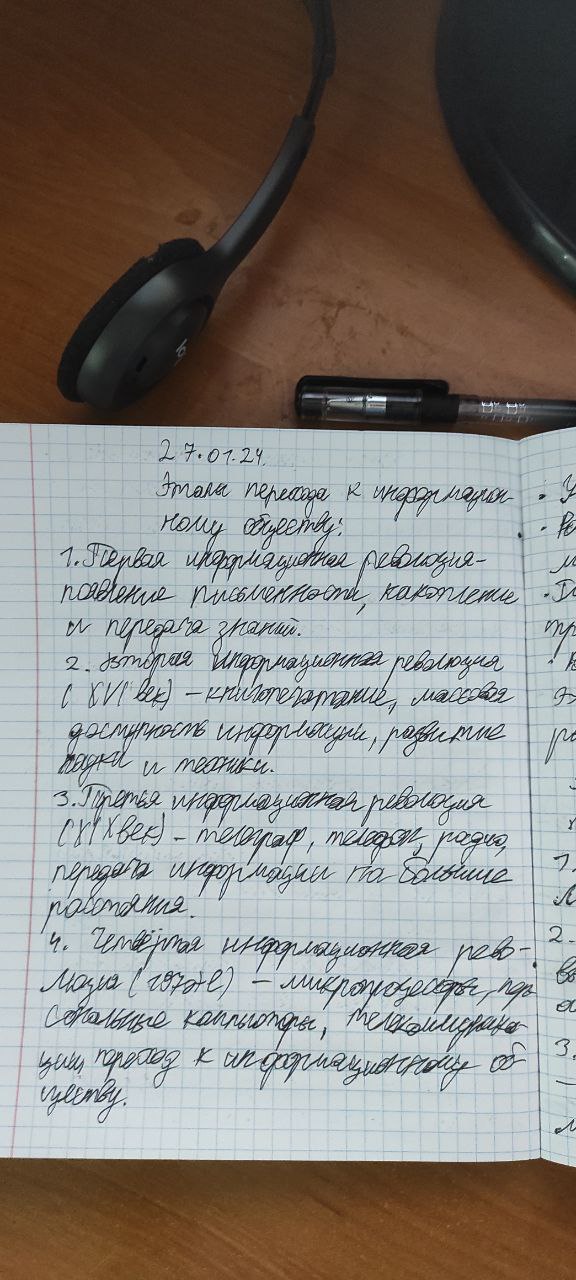 27.01.24.
Этапы перехода к информацион-
ному обществу:
1. Первая информационная революция-
появление письменности, накопление
и передача знаний.
2. Вторая информационная революция
(XVI век) – книгопечатание, массовая
доступность информации, развитие
науки и техники.
3. Третья информационная революция
(XIX век) – телеграф, телефон, радио,
передача информации на большие
расстояния.
4. Четвёртая информационная рево-
люция (1970-е) – микропроцессоры, пер
сональные компьютеры, телекоммуника
ции, переход к информационному об
ществу.
1.
2.
3.